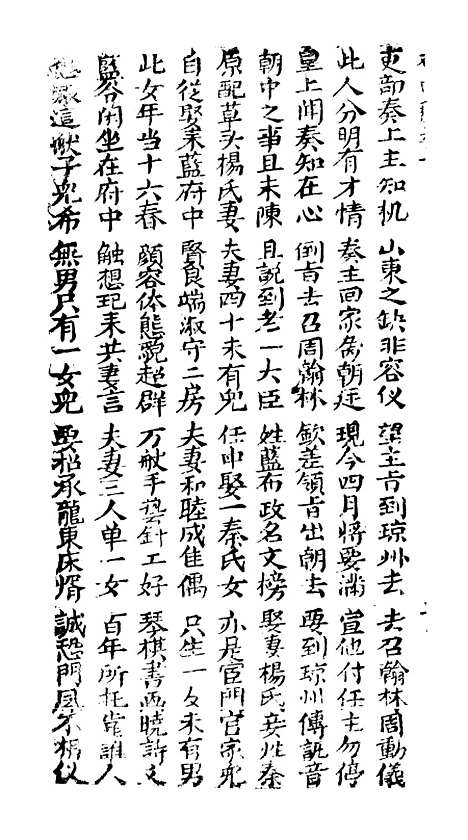 吏部奏上主知机 山東之缺非容仪 望主旨到琼州去 去召翰林周動儀
此人分明有才情 奏主回家离朝廷 現今四月将要滿 宣他付任主勿停
皇上闻奏知在心 倒旨去召周翰林 欽差領旨出朝去 要到琼州傳訊音
朝中之事且未陳 且説到老一大臣 姓藍布政名文榜 娶妻楊氏妾兆秦
原配草头楊氏妻 夫妻四十未有兒 任中娶一秦氏女 亦是官門官家兒
自從娶来藍府中 賢良端淑守二房 夫妻和睦成佳偶 只生一女未有男
此女年当十六春 顔容体態貌超群 万般手藝針工好 琴棋書画曉詩文
藍爷闲坐在府中 触想起来共妻言 夫妻三人单一女 百年所托肯誰人
這子兒希 無男只有一女兒 要招承龍東床婿 誠恐門風不相仪